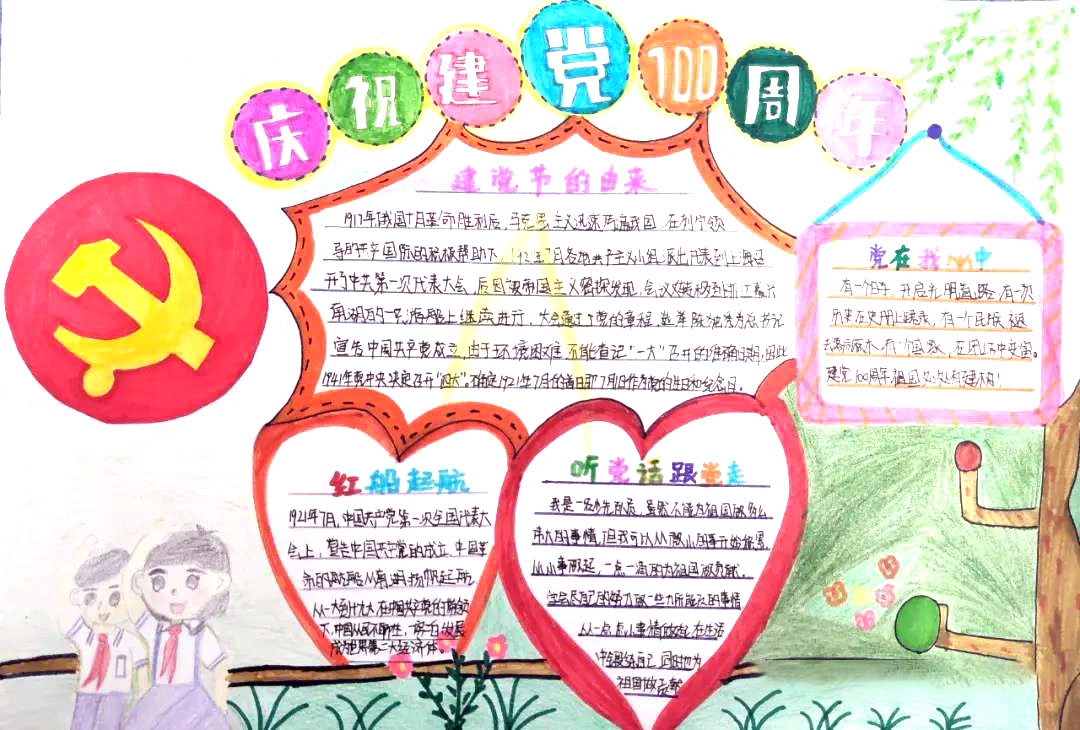 庆祝建党100周年
建党节的由来
1917年俄国十月革命胜利后,马克思主义迅速传遍我国,在列宁领
导的共产国际的积极帮助下,1921年7月各地共产主义小组派出代表到上海召
开了中共第一次代表大会,后因被帝国主义密探发现,会议又转移到浙江嘉兴
南湖的一只游船上继续进行,大会通过了党的章程,选举陈独秀为总书记
宣告中国共产党成立,由于环境困难不能查记"一大"召开的准确日期,因此
1941年党中央决定召开"四大".确定1921年7月的首日即7月1日作为党的生日和纪念日。
党在我心中
有一个日子,开启光明道路,有一次
历史在史册上镌刻,有一个民族
有一个国家,在
建党100周年,祖国处处有建树!
红船起航
1921年7月,中国共产党第一次全国代表大
会上,宣告中国共产党的成立,中国革
命的航船从南湖扬帆起航
从一大到十九大,在中国共产党的带领
下,中国从
成为世界第二大经济体。
听党话跟党走
我是一名少先队员,虽然不懂为祖国做多么
伟大的事情,但我可以从微小的事开始
从小事做起,一点一滴的为祖国做贡献。
尽自己的努力做一些力所能及的事情
从一点点小事情做起,在生活
中 自己,同时也为
祖国做贡献